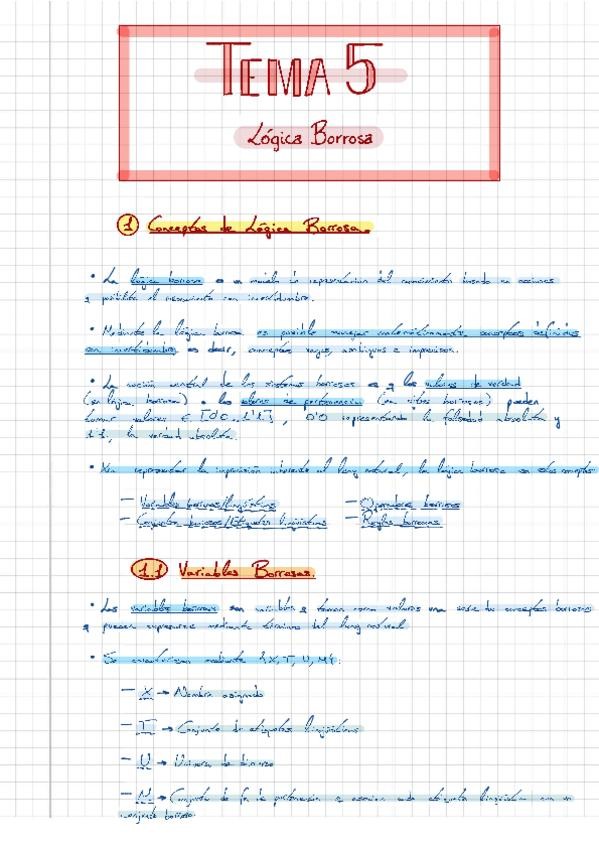 TEMA 5
Lógica Borrosa
1 Conceptos de Lógica Borrosa.
• La lógica borrosa es un modelo de representación del conocimiento basado en
q posibilita el razonamiento con incertidumbre.
• Mediante la lógica borrosa es posible manejar matemáticamente conceptos definidos
con incertidumbre, es decir, conceptos vagos, ambiguos e imprecisos.
• La noción central de los sistemas borrosos es q los valores de verdad
(en lógica borrosa) o los valores de pertenencia (en borrosos) pueden
tomar valores ∈ [0'0..1'1], 0'0 representando la falsedad absoluta y
1'1, la verdad absoluta.
• representar la imprecisión inherente al leng natural, la lógica borrosa
– Variables borrosas/lingüísticas – Operadores borrosos
– Conjuntos borrosos/Etiquetas lingüísticas – Reglas borrosas
1.1 Variables Borrosas.
• Las variables borrosas son variables q toman como valores una serie de conceptos borrosos
q pueden expresarse mediante términos del leng natural
• Se caracterizan mediante {X, T, U, M}:
– X → Nombre asignado
– T → Conjunto de etiquetas lingüísticas
– U → Universo de discurso
– M → Conjunto de de pertenencia q asocian cada etiqueta lingüística con un
conjunto borroso.